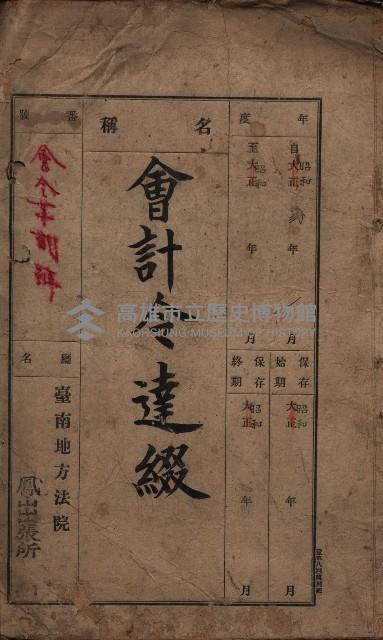 年度
自大正昭和 年 月
至大正昭和 年 月
保存始期
大正昭和 年 月
保存終期
大正昭和 年 月
名稱
會計令達綴
番號
廳名
臺南地方法院
鳳山出張所
高雄市立歷史博物館
KAOHSIUNG MUSEUM OF HISTORY